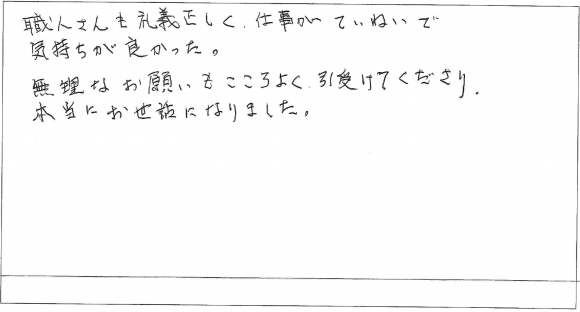 職人さんも礼義正しく、仕事がていねいで
気持ちが良かった。
無理なお願いもこころよく引受けてくださり、
本当にお世話になりました。